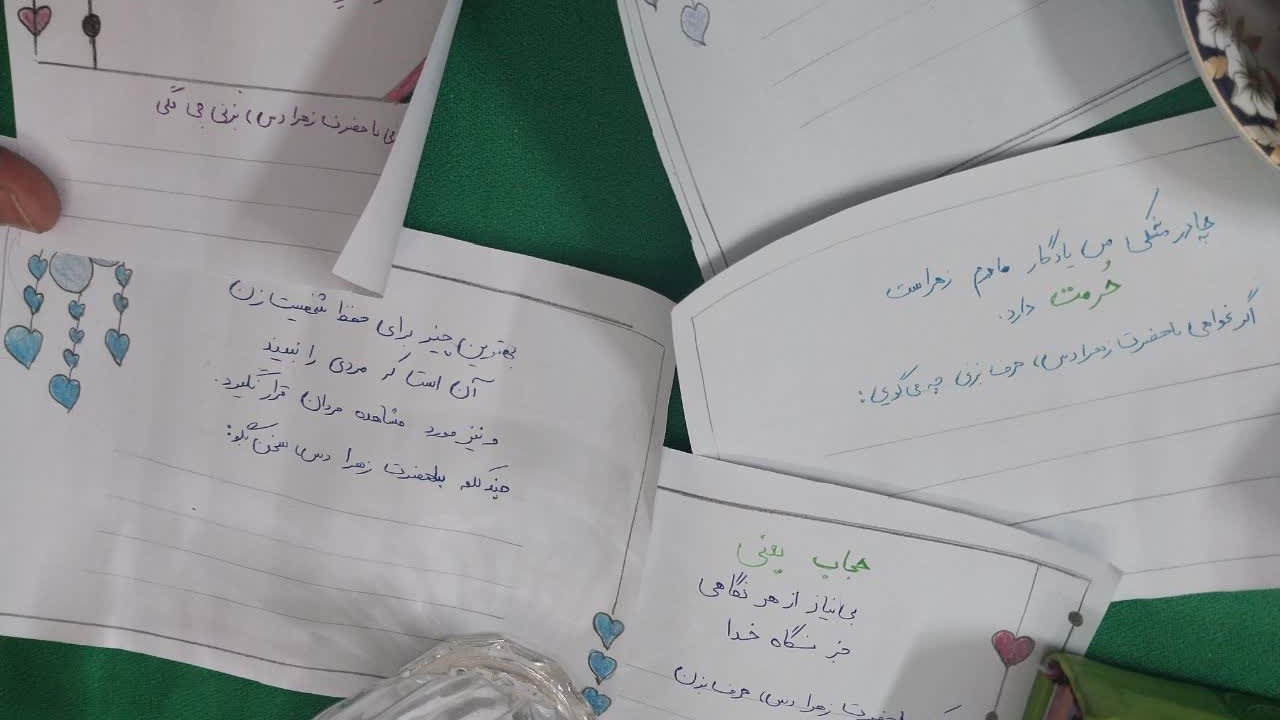 با حضرت زهرا (س) بزنی چی می گی
چادر مشکی من یادگار مادرم زهراست
و
حرمت دارد.
اگر بخواهی با حضرت زهرا (س) حرف بزنی چه می گویی:
بهترین چیز برای حفظ شخصیت زن
آن است که مردی را نبیند
و نیز مورد مشاهده مردان قرار نگیرد.
چند کلمه با حضرت زهرا (س) سخن بگو:
حجاب یعنی
بی نیاز از هر نگاهی
جز نگاه خدا
با حضرت زهرا (س) حرف بزن